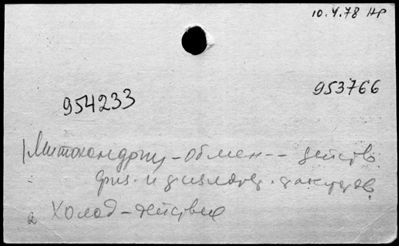 10.4.78 Нр
953766
954233
1) Митохондрии - обмен -- действ.
физ. и факторов
2 Холод - действие